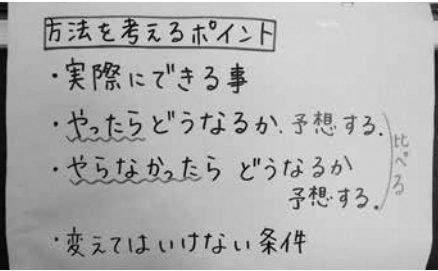 方法を考えるポイント
・実際にできる事
・やったらどうなるか、予想する。
・やらなかったら どうなるか
予想する。
比べる
・変えてはいけない条件